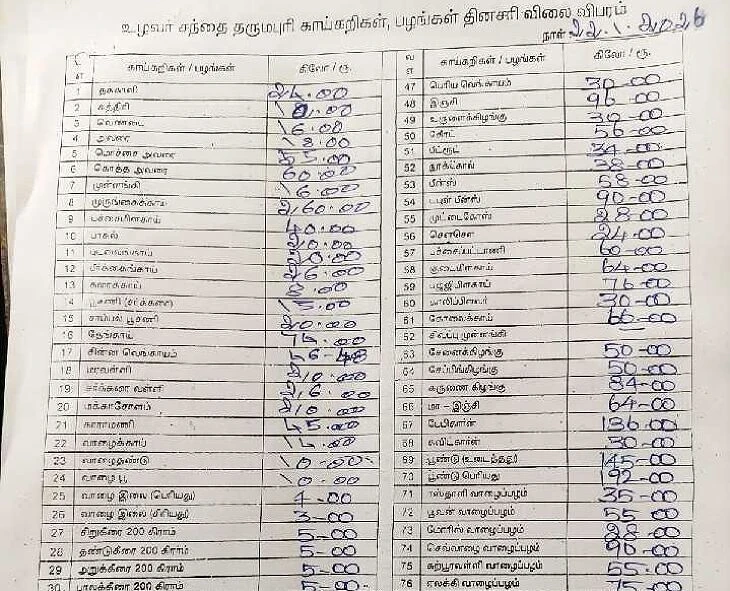 உழவர் சந்தை தருமபுரி காய்கறிகள், பழங்கள் தினசரி விலை விபரம்
நாள் 22.1.2026
காய்கறிகள் / பழங்கள் கிலோ / ரூ.
1 தக்காளி 24.00
2 கத்திரி
3 வெண்டை 16.00
4 அவரை 18.00
5 மொச்சை அவரை 35.00
6 கொத்த அவரை 60.00
7 முள்ளங்கி 16.00
8 முருங்கைக்காய் 260.00
9 பச்சைமிளகாய் 40.00
10 பாகல் 20.00
11 புடலங்காய் 20.00
12 பீர்க்கங்காய் 26.00
13 சுரைக்காய் 8.00
14 பூசணி (சர்க்கரை) 15.00
15 சாம்பல் பூசணி 20.00
16 தேங்காய்
17 சின்ன வெங்காயம் 56-48
18 மரவள்ளி 20.00
19 சர்க்கரை வள்ளி
20 மக்காசோளம்
21 காராமணி 45.00
22 வாழைக்காய்
23 வாழைதண்டு 10.00
24 வாழை பூ 10.00
25 வாழை இலை (பெரியது) 4-00
26 வாழை இலை (சிறியது) 3-00
27 சிறுகீரை 200 கிராம் 5-00
28 தண்டுகீரை 200 கிராம் 5-00
29 அறுக்கீரை 200 கிராம் 5-00
30 பாலக்கீரை 200 கிராம் 5-00
காய்கறிகள் / பழங்கள் கிலோ / ரூ.
47 பெரிய வெங்காயம் 30-00
48 இஞ்சி 96-00
49 உருளைக்கிழங்கு 30-00
50 கேரட் 56-00
51 பீட்ரூட் 34-00
52 நூக்கோல் 38-00
53 பீன்ஸ் 58-00
54 டபுள் பீன்ஸ் 90-00
55 முட்டைகோஸ் 28-00
56 சௌசௌ 24-00
57 பச்சைப்பட்டாணி 60-00
58 குடைமிளகாய் 64-00
59 பஜ்ஜிமிளகாய் 76-00
60 காலிப்பிளவர் 30-00
61 கோவைக்காய் 66-00
62 சிவப்பு முள்ளங்கி
63 சேனைக்கிழங்கு 50-00
64 சேப்பங்கிழங்கு 50-00
65 கருணை கிழங்கு 84-00
66 மா - இஞ்சி 64-00
67 பேபிகார்ன் 136-00
68 சுவிட்கார்ன் 30-00
69 பூண்டு (உடைத்தது) 145-00
70 பூண்டு பெரியது 192-00
71 ரஸ்தாளி வாழைப்பழம் 35-00
72 பூவன் வாழைப்பழம் 55-00
73 மோரிஸ் வாழைப்பழம் 28-00
74 செவ்வாழை வாழைப்பழம் 90-00
75 கற்பூரவள்ளி வாழைப்பழம் 55-00
76 ஏலக்கி வாழைப்பழம் 75-00